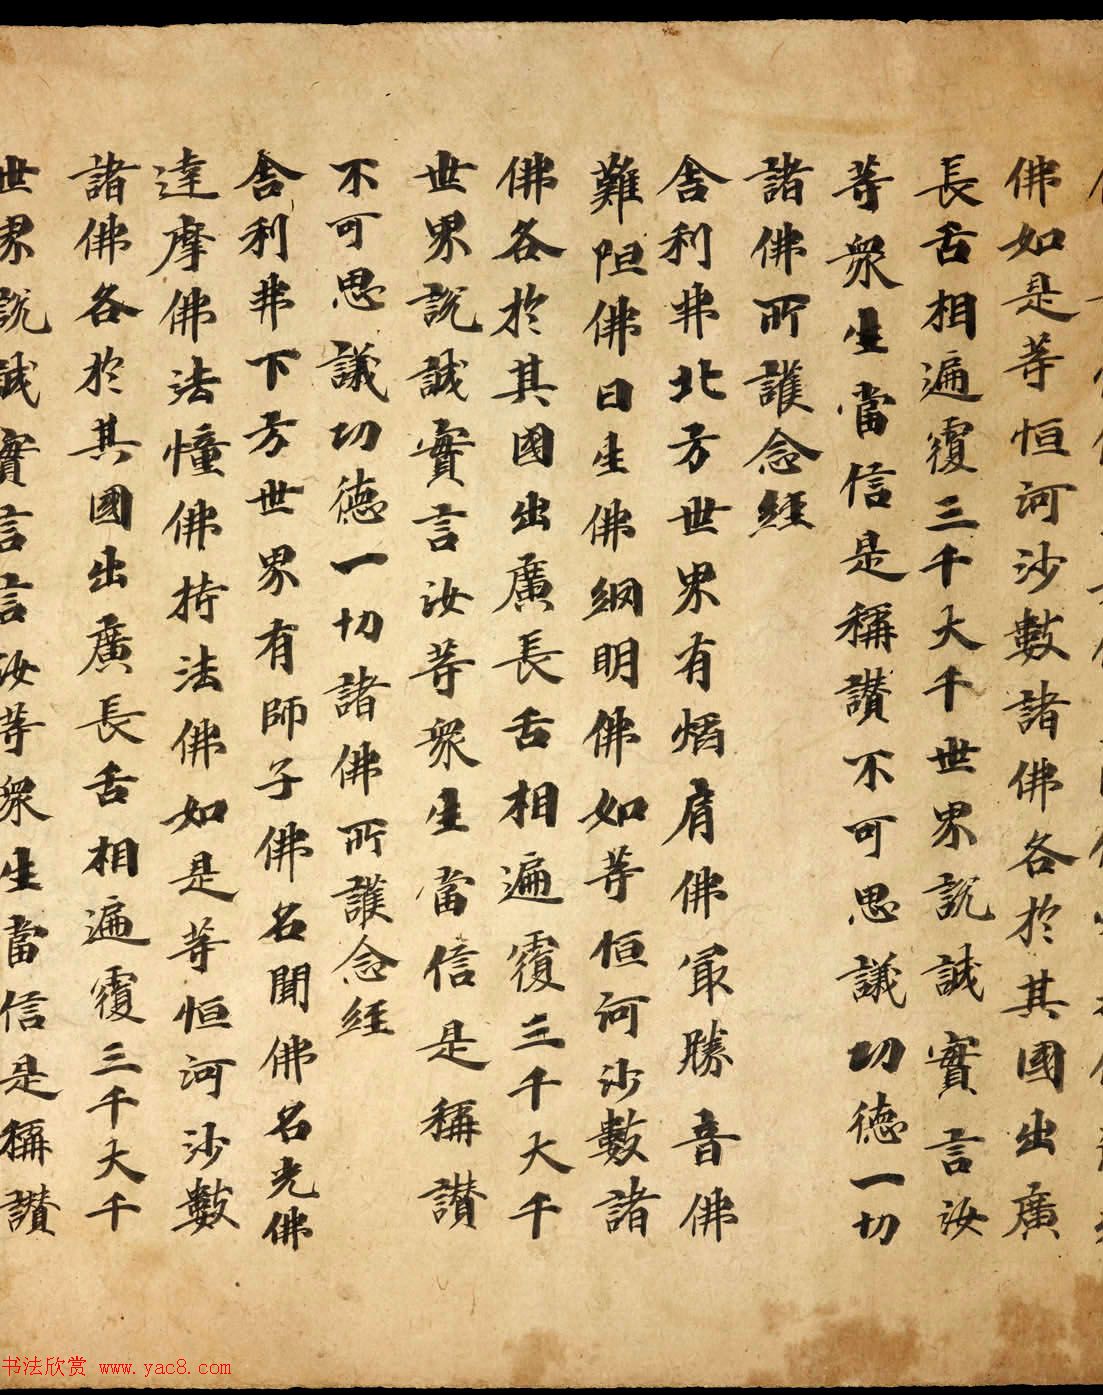 佛如是等恒河沙數諸佛各於其國出廣
長舌相遍覆三千大千世界説誠實言汝
等衆生當信是稱讃不可思議切德一切
諸佛所護念經
舍利弗北方世界有熖肩佛冣勝音佛
難阻佛日生佛綱明佛如等恒河沙數諸
佛各於其國出廣長舌相遍覆三千大千
世界説誠實言汝等衆生當信是稱讃
不可思議切德一切諸佛所護念經
舍利弗下方世界有師子佛名聞佛名光佛
達摩佛法憧佛持法佛如是等恒河沙數
諸佛各於其國出廣長舌相遍覆三千大千
世界説誠實言言汝等衆生當信是稱讃
书法欣赏 www.yac8.com